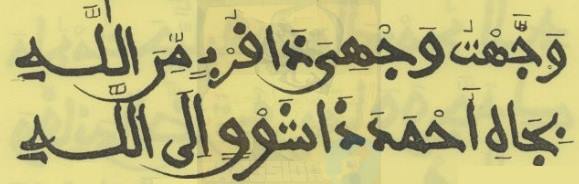 وَجَّهْتُ وَجْهِيَ ذَا قُرْبٍ مِّنَ اللَّهِ
بِجَاهِ أَحْمَدَ ذَا شَوْقٍ إِلَى اللَّهِ